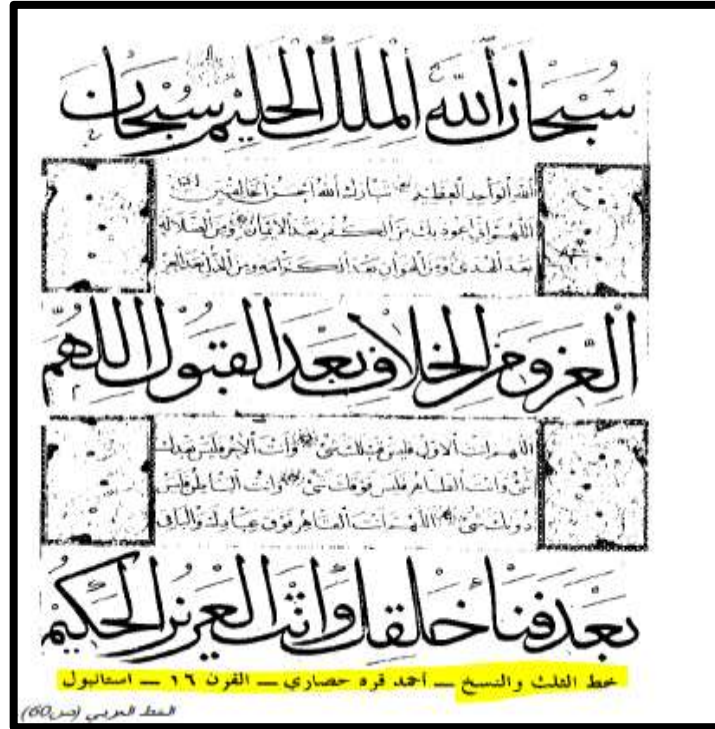 سبحان الله الملك الحليم سبحان
الله الواحد العظيم تبارك الله احسن الخالقين
اللهم اني اعوذ بك من الكفر بعد الايمان ومن الضلالة
بعد الهدى ومن الهوان بعد الكرامة ومن الذل بعد العز
العز ومن الخلاف بعد القبول اللهم
اللهم انت الاول فليس قبلك شئ وانت الآخر فليس بعدك
شئ وانت الظاهر فليس فوقك شئ وانت الباطن فليس
دونك شئ اللهم انت القاهر فوق عبادك والباقي
بعد فناء خلقك وانت العزيز الحكيم
خط الثلث والنسخ — أحمد قره حصاري — القرن ١٦ — استانبول
الخط العربي (ص60)